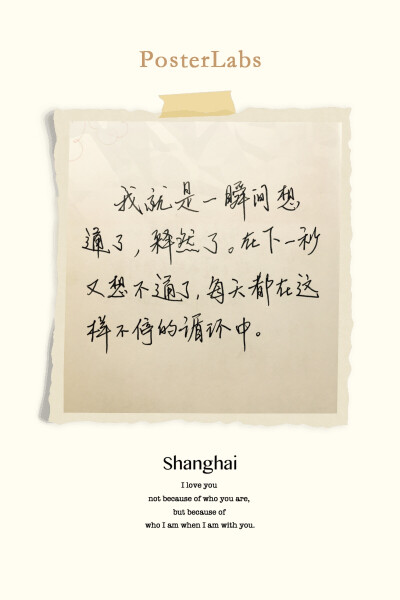 PosterLabs
我就是一瞬间想
通了，释然了。在下一秒
又想不通了，每天都在这
样不停的循环中。
Shanghai
I love you
not because of who you are,
but because of
who I am when I am with you.